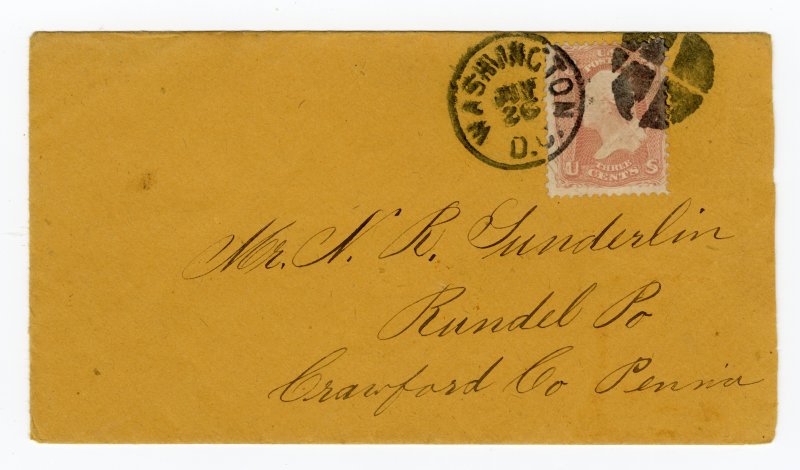 WASHINGTON
JUL
26
D.C.
U.S.
POST
THREE
U CENTS S
Mr. N. R. Gunderlin
Rundel Po
Crawford Co Penna